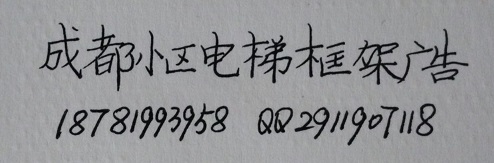 成都小区电梯框架广告
18781993958 QQ2911907118